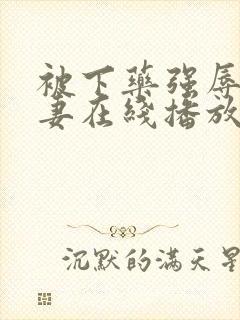 被下藥强辱
妻在綫播放
沉默的满天星